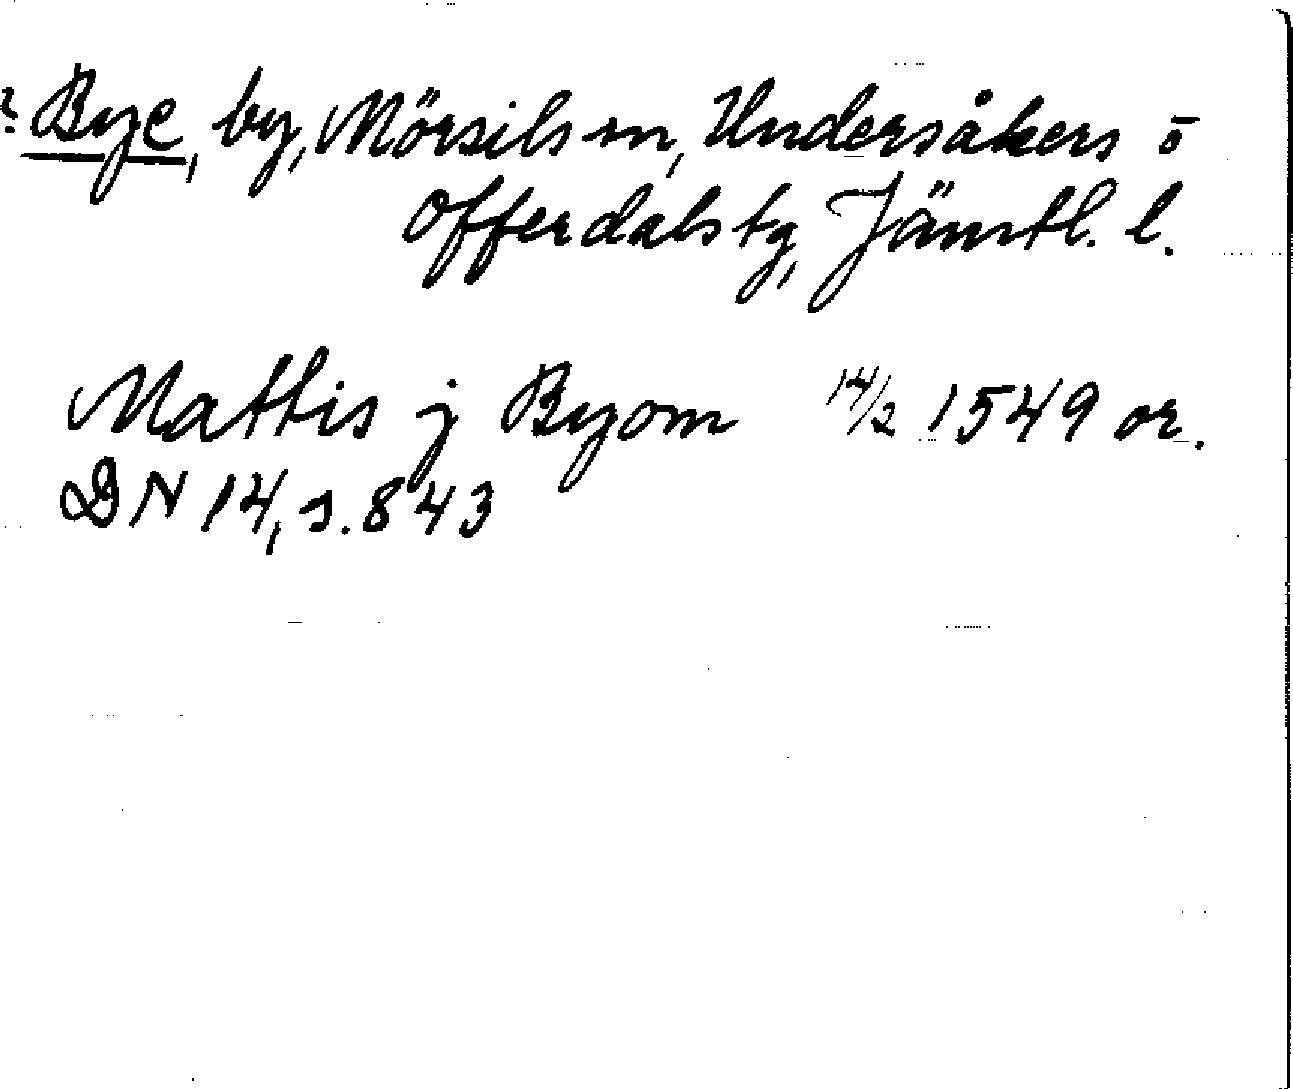 ? Bye, by, Mörsils sn, Undersåkers o
Offerdals tg, Jämtl. l.
Mattis j Byom 14/2 1549 or.
DN 14, s. 843